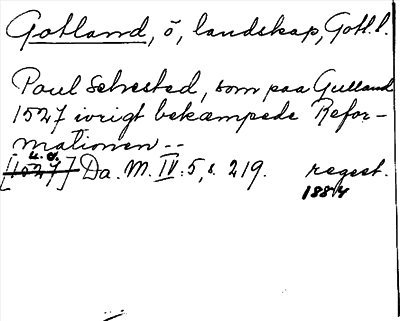 Gotland, ö, landskap, Gotl.l.
Paul Sehested, som paa Gulland
1527 ivrigt bekæmpede Refor-
mationen --
u.d.
[1527] Da. M. IV. 5, s. 219. regest.
1884